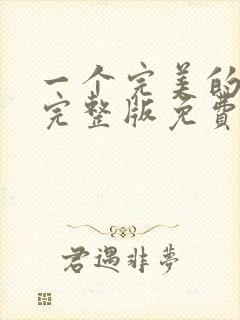 一个完美的
完整版免费
君遇非夢